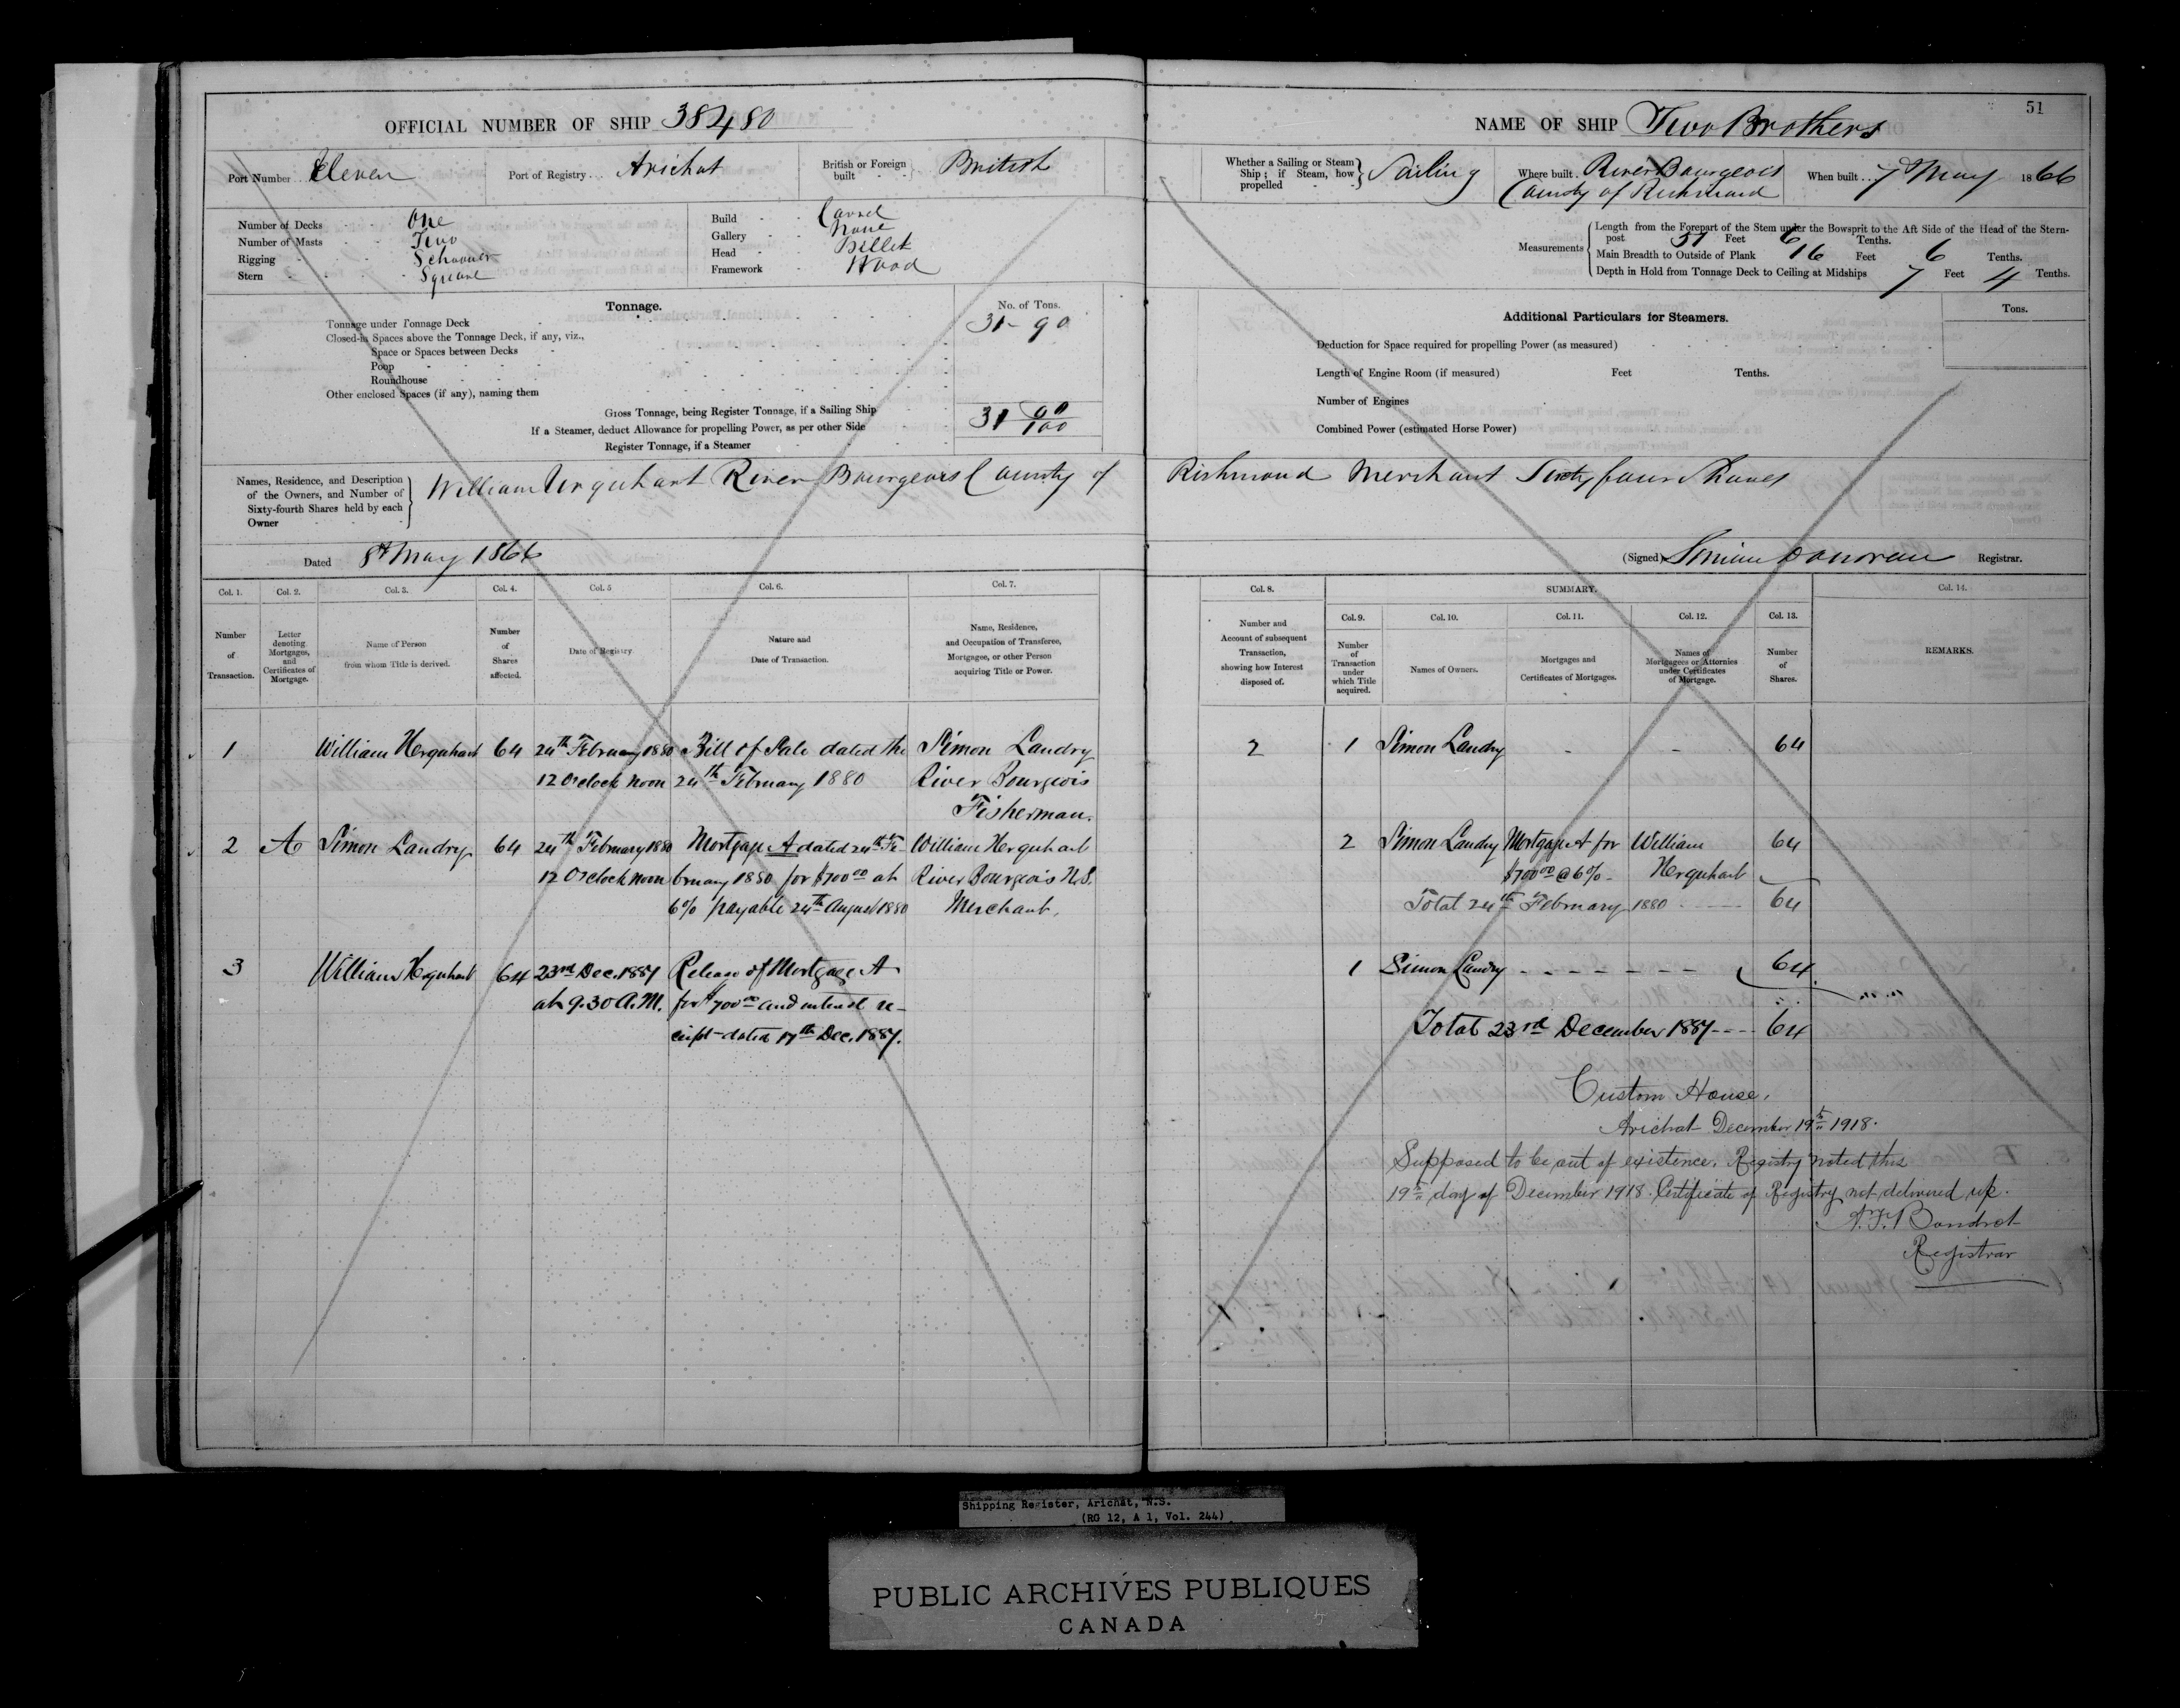 OFFICIAL NUMBER OF SHIP 38480
Port Number Eleven Port of Registry Arichat British or Foreign built British
Number of Decks One
Number of Masts Two
Rigging Schooner
Stern Square
Build Carvel
Gallery None
Head Billet
Framework Wood
Tonnage. No. of Tons.
Tonnage under Tonnage Deck 31-90
Closed-in Spaces above the Tonnage Deck, if any, viz.,
Space or Spaces between Decks
Poop
Roundhouse
Other enclosed Spaces (if any), naming them
Gross Tonnage, being Register Tonnage, if a Sailing Ship 31 90/100
If a Steamer, deduct Allowance for propelling Power, as per other Side
Register Tonnage, if a Steamer
Names, Residence, and Description of the Owners, and Number of Sixty-fourth Shares held by each Owner
William Urquhart River Bourgeois County of
Dated 8th May 1866
Col. 1. Col. 2. Col. 3. Col. 4. Col. 5 Col. 6. Col. 7.
Number of Transaction.
Letter denoting Mortgages, and Certificates of Mortgage.
Name of Person from whom Title is derived.
Number of Shares affected.
Date of Registry.
Nature and Date of Transaction.
Name, Residence, and Occupation of Transferee, Mortgagee, or other Person acquiring Title or Power.
1 William Herquhart 64 24th February 1880 Bill of Sale dated the Simon Landry
12 O'clock noon 24th February 1880 River Bourgeois
Fisherman.
2 A Simon Landry 64 24th February 1880 Mortgage A dated 24th Fe- William Herquhart
12 O'clock noon bruary 1880 for $700 00 at River Bourgeois N.S.
6% payable 24th August 1880 Merchant.
3 William Herquhart 64 23rd Dec. 1887 Release of Mortgage A
at 9.30 A.M. for $700 00 and interest re-
ceipt dated 17th Dec. 1887.
51
NAME OF SHIP Two Brothers
Whether a Sailing or Steam Ship; if Steam, how propelled Sailing Where built River Bourgeois When built 7 May 1866
County of Richmond
Measurements
Length from the Forepart of the Stem under the Bowsprit to the Aft Side of the Head of the Stern-
post 51 Feet 6 Tenths.
Main Breadth to Outside of Plank 16 Feet 6 Tenths.
Depth in Hold from Tonnage Deck to Ceiling at Midships 7 Feet 4 Tenths.
Additional Particulars for Steamers. Tons.
Deduction for Space required for propelling Power (as measured)
Length of Engine Room (if measured) Feet Tenths.
Number of Engines
Combined Power (estimated Horse Power)
Richmond Merchant Sixty four Shares
(Signed) Donovan Registrar.
Col. 8. SUMMARY. Col. 14.
Col. 9. Col. 10. Col. 11. Col. 12. Col. 13.
Number and Account of subsequent Transaction, showing how Interest disposed of.
Number of Transaction under which Title acquired.
Names of Owners.
Mortgages and Certificates of Mortgages.
Names of Mortgagees or Attornies under Certificates of Mortgage.
Number of Shares.
REMARKS.
2 1 Simon Landry - - 64
2 Simon Landry Mortgage A for William 64
$700 00 @ 6% Herquhart
Total 24th February 1880 64
1 Simon Landry 64
Total 23rd December 1887 64
Custom House,
Arichat December 19th 1918.
Supposed to be out of existence. Registry noted this
19th day of December 1918. Certificate of Registry not delivered up.
Registrar
Shipping Register, Arichat, N.S.
(RG 12, A 1, Vol. 244)
PUBLIC ARCHIVES PUBLIQUES
CANADA